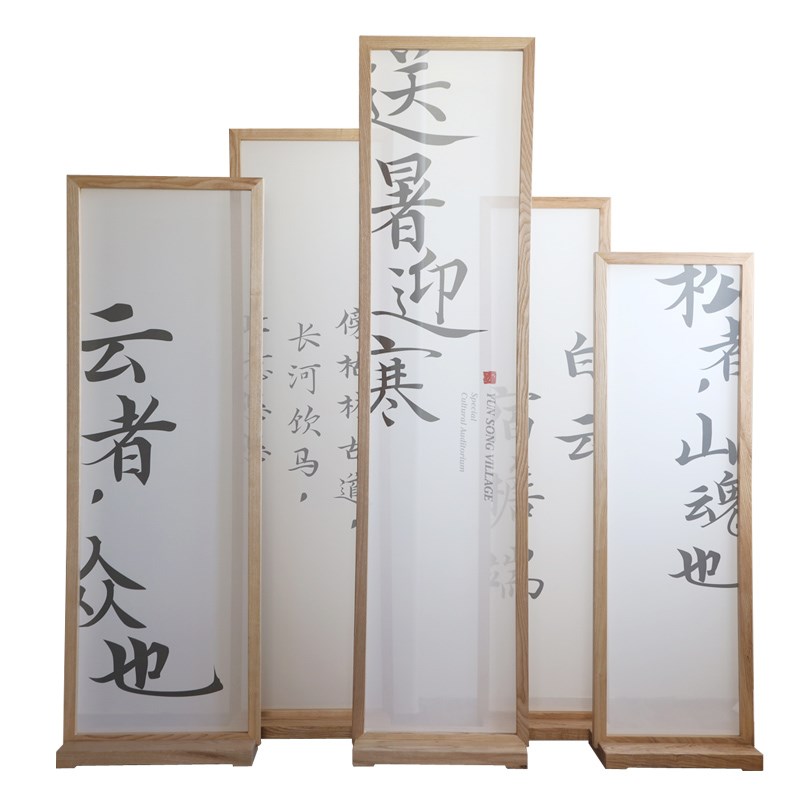 云者，众也
傍枯林古道，
长河饮马，
送暑迎寒
YUN SONG VILLAGE
Special
Cultural Auditorium
白云
松者，山魂也